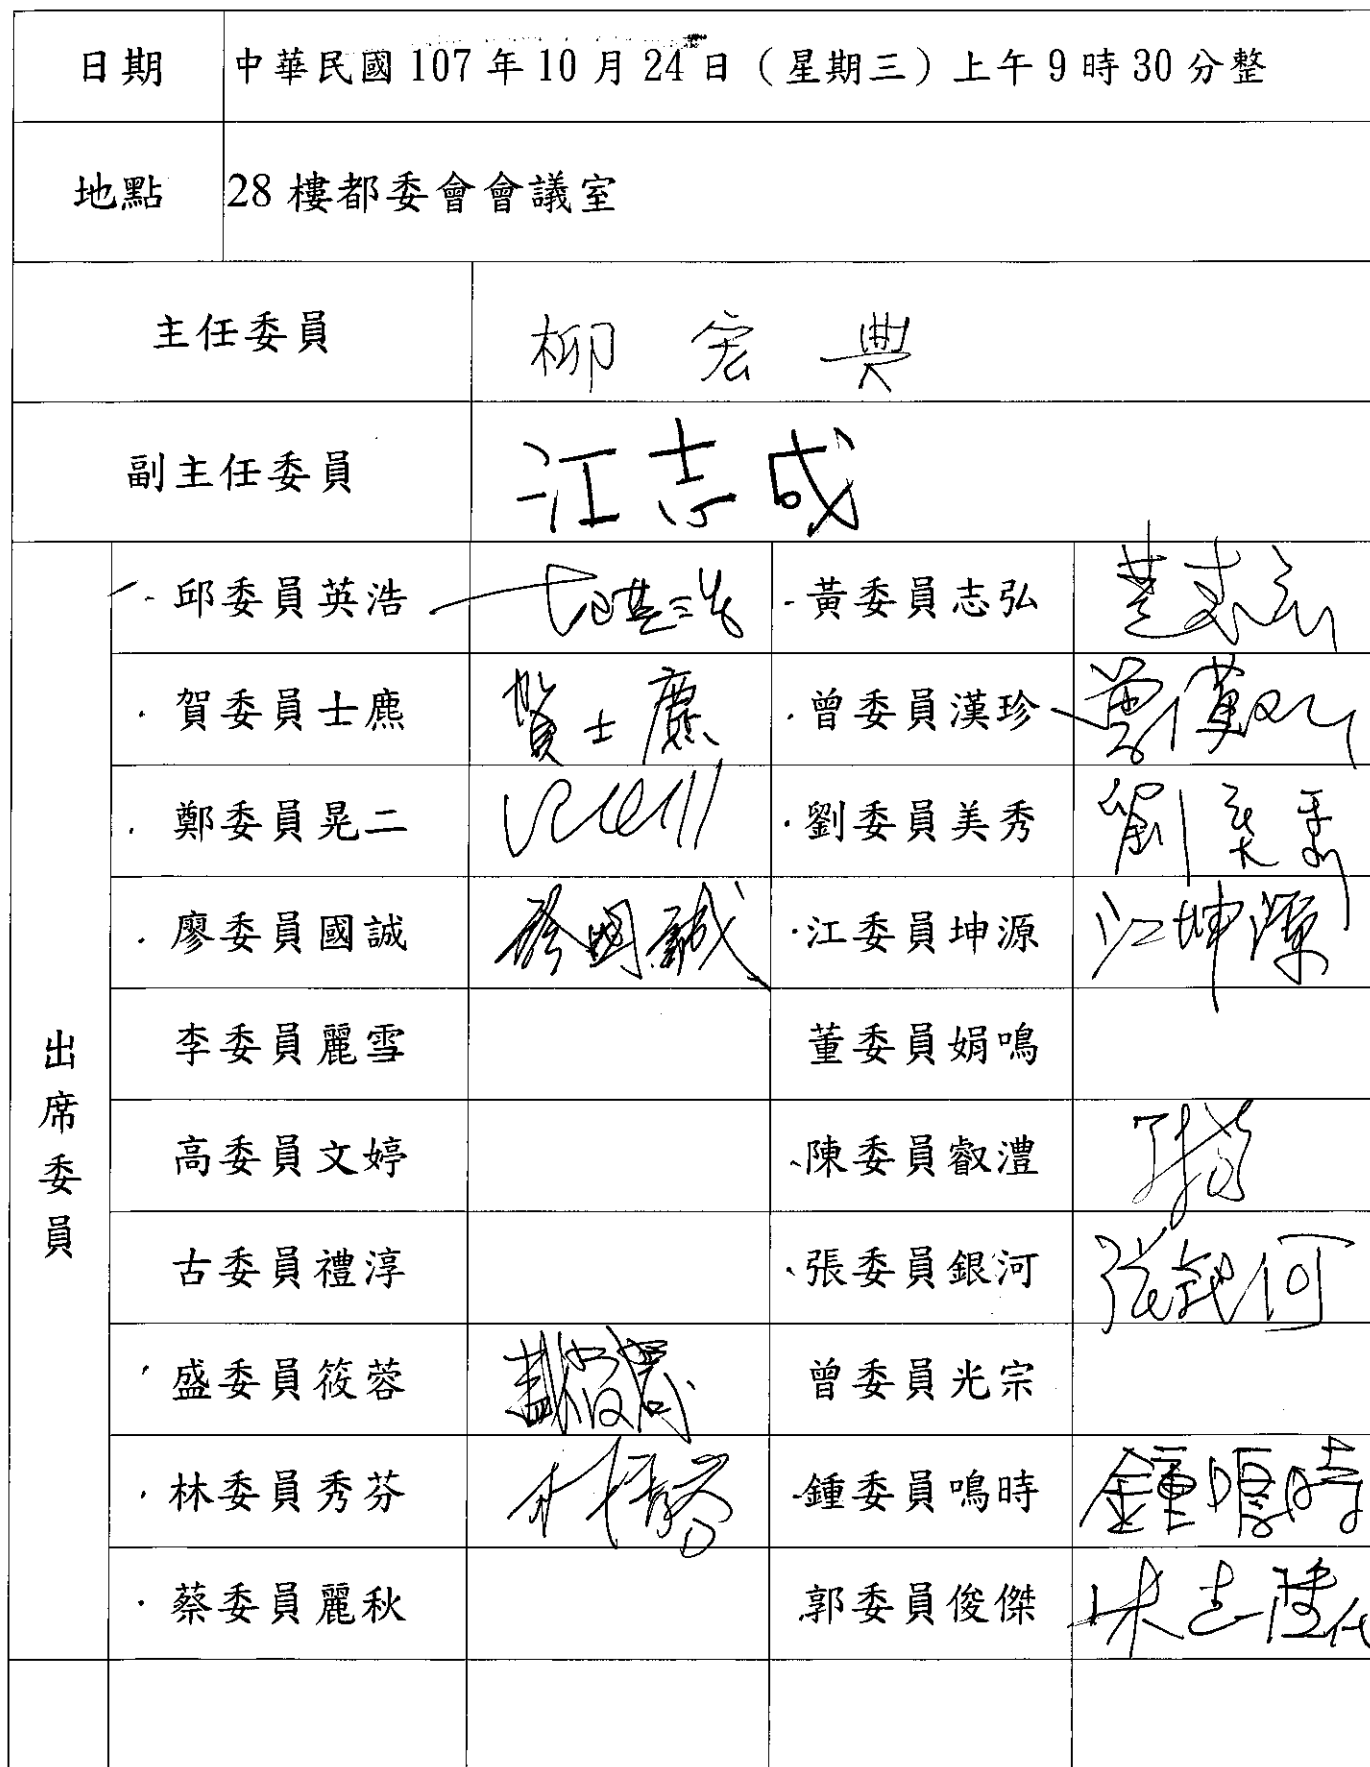 日期 中華民國 107 年 10 月 24 日（星期三）上午 9 時 30 分整
地點 28 樓都委會會議室
主任委員 柳宏典
副主任委員 江志成
出席委員
邱委員英浩 黃委員志弘
賀委員士麃 賀士麃 曾委員漢珍 曾漢珍
鄭委員晃二 劉委員美秀 劉美秀
廖委員國誠 廖國誠 江委員坤源 江坤源
李委員麗雪 董委員娟鳴
高委員文婷 陳委員叡澧
古委員禮淳 張委員銀河 張銀河
盛委員筱蓉 盛筱蓉 曾委員光宗
林委員秀芬 鍾委員鳴時 鍾鳴時
蔡委員麗秋 郭委員俊傑